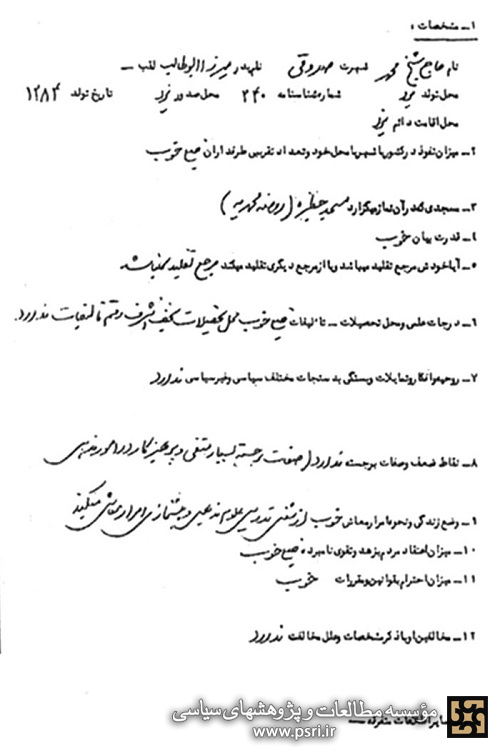 ۱ـ مشخصات :
نام حاج شیخ محمد شهرت صدوقی نامپدر میرزا ابوطالب لقب ـ
محل تولد یزد شماره شناسنامه ۲۴۰ محل صدور یزد تاریخ تولد ۱۲۸۴
محل اقامت دائم یزد
۲ـ میزان نفوذ در کشور یا شهر یا محل خود و تعداد تقریبی طرفداران خیلی خوب
۳ـ مسجدی که در آن نماز میگزارد مسجد حظیره (روضه محمدیه)
٤ـ قدرت بیان خوب
٥ـ آیا خودش مرجع تقلید میباشد و یا از مرجع دیگری تقلید میکند مرجع تقلید نمیباشد
٦ـ درجات علمی و محل تحصیلات ـ تالیفات خیلی خوب محل تحصیلات نجف اشرف و قم تالیفات ندارد.
۷ـ روحیه و افکار و تمایلات و بستگی به دستجات مختلف سیاسی و غیر سیاسی ندارد
۸ـ نقاط ضعف و صفات برجسته ندارد (صفات برجسته بسیار متقی و پرهیزکار در امور مذهبی
۹ـ وضع زندگی و نحوه امرار معاش خوب از تدریس علوم مذهبی و پیشنمازی امرار معاش میکند
۱۰ـ میزان اعتقاد مردم بزهد و تقوی نامبرده خیلی خوب
۱۱ـ میزان احترام بقوانین و مقررات خوب
۱۲ـ مخالفین او با ذکر مشخصات و علل مخالفت ندارد
سایر اطلاعات متفرقه ـ
مؤسسه مطالعات و پژوهشهای سیاسی
www.psri.ir